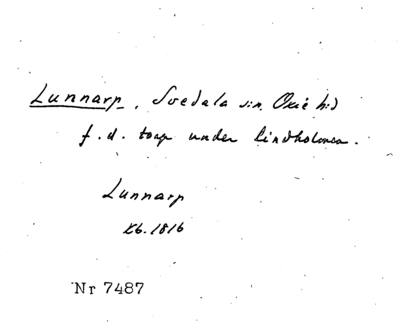 Lunnarp, Svedala sn. Oxie hd
f. d. torp under Lindholmen.
Lunnarp
Kb. 1816
Nr 7487